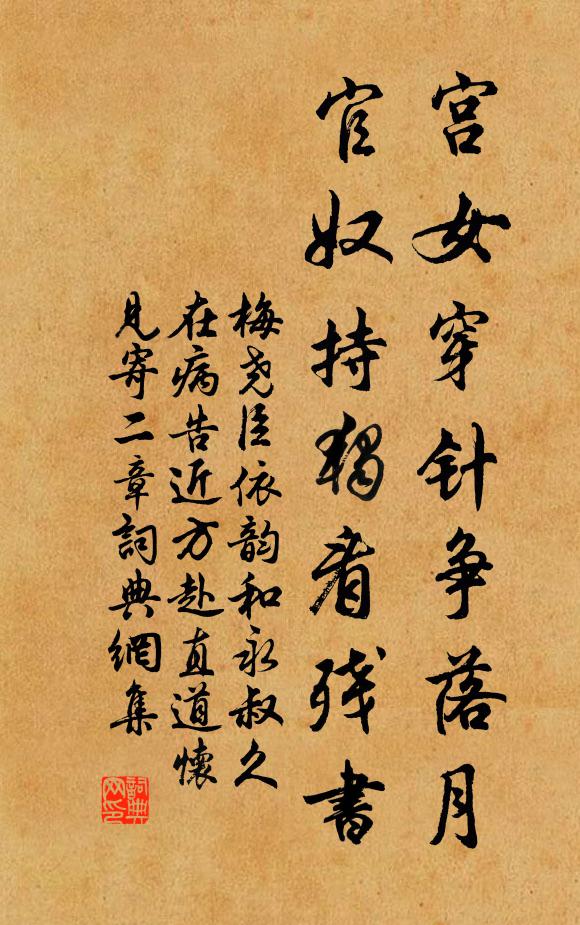 宫女穿针争落月
官奴持燭看残書
梅尧臣依韵和永叔久
在病告近方赴直道懷
见寄二章詞典網集
詞典网印